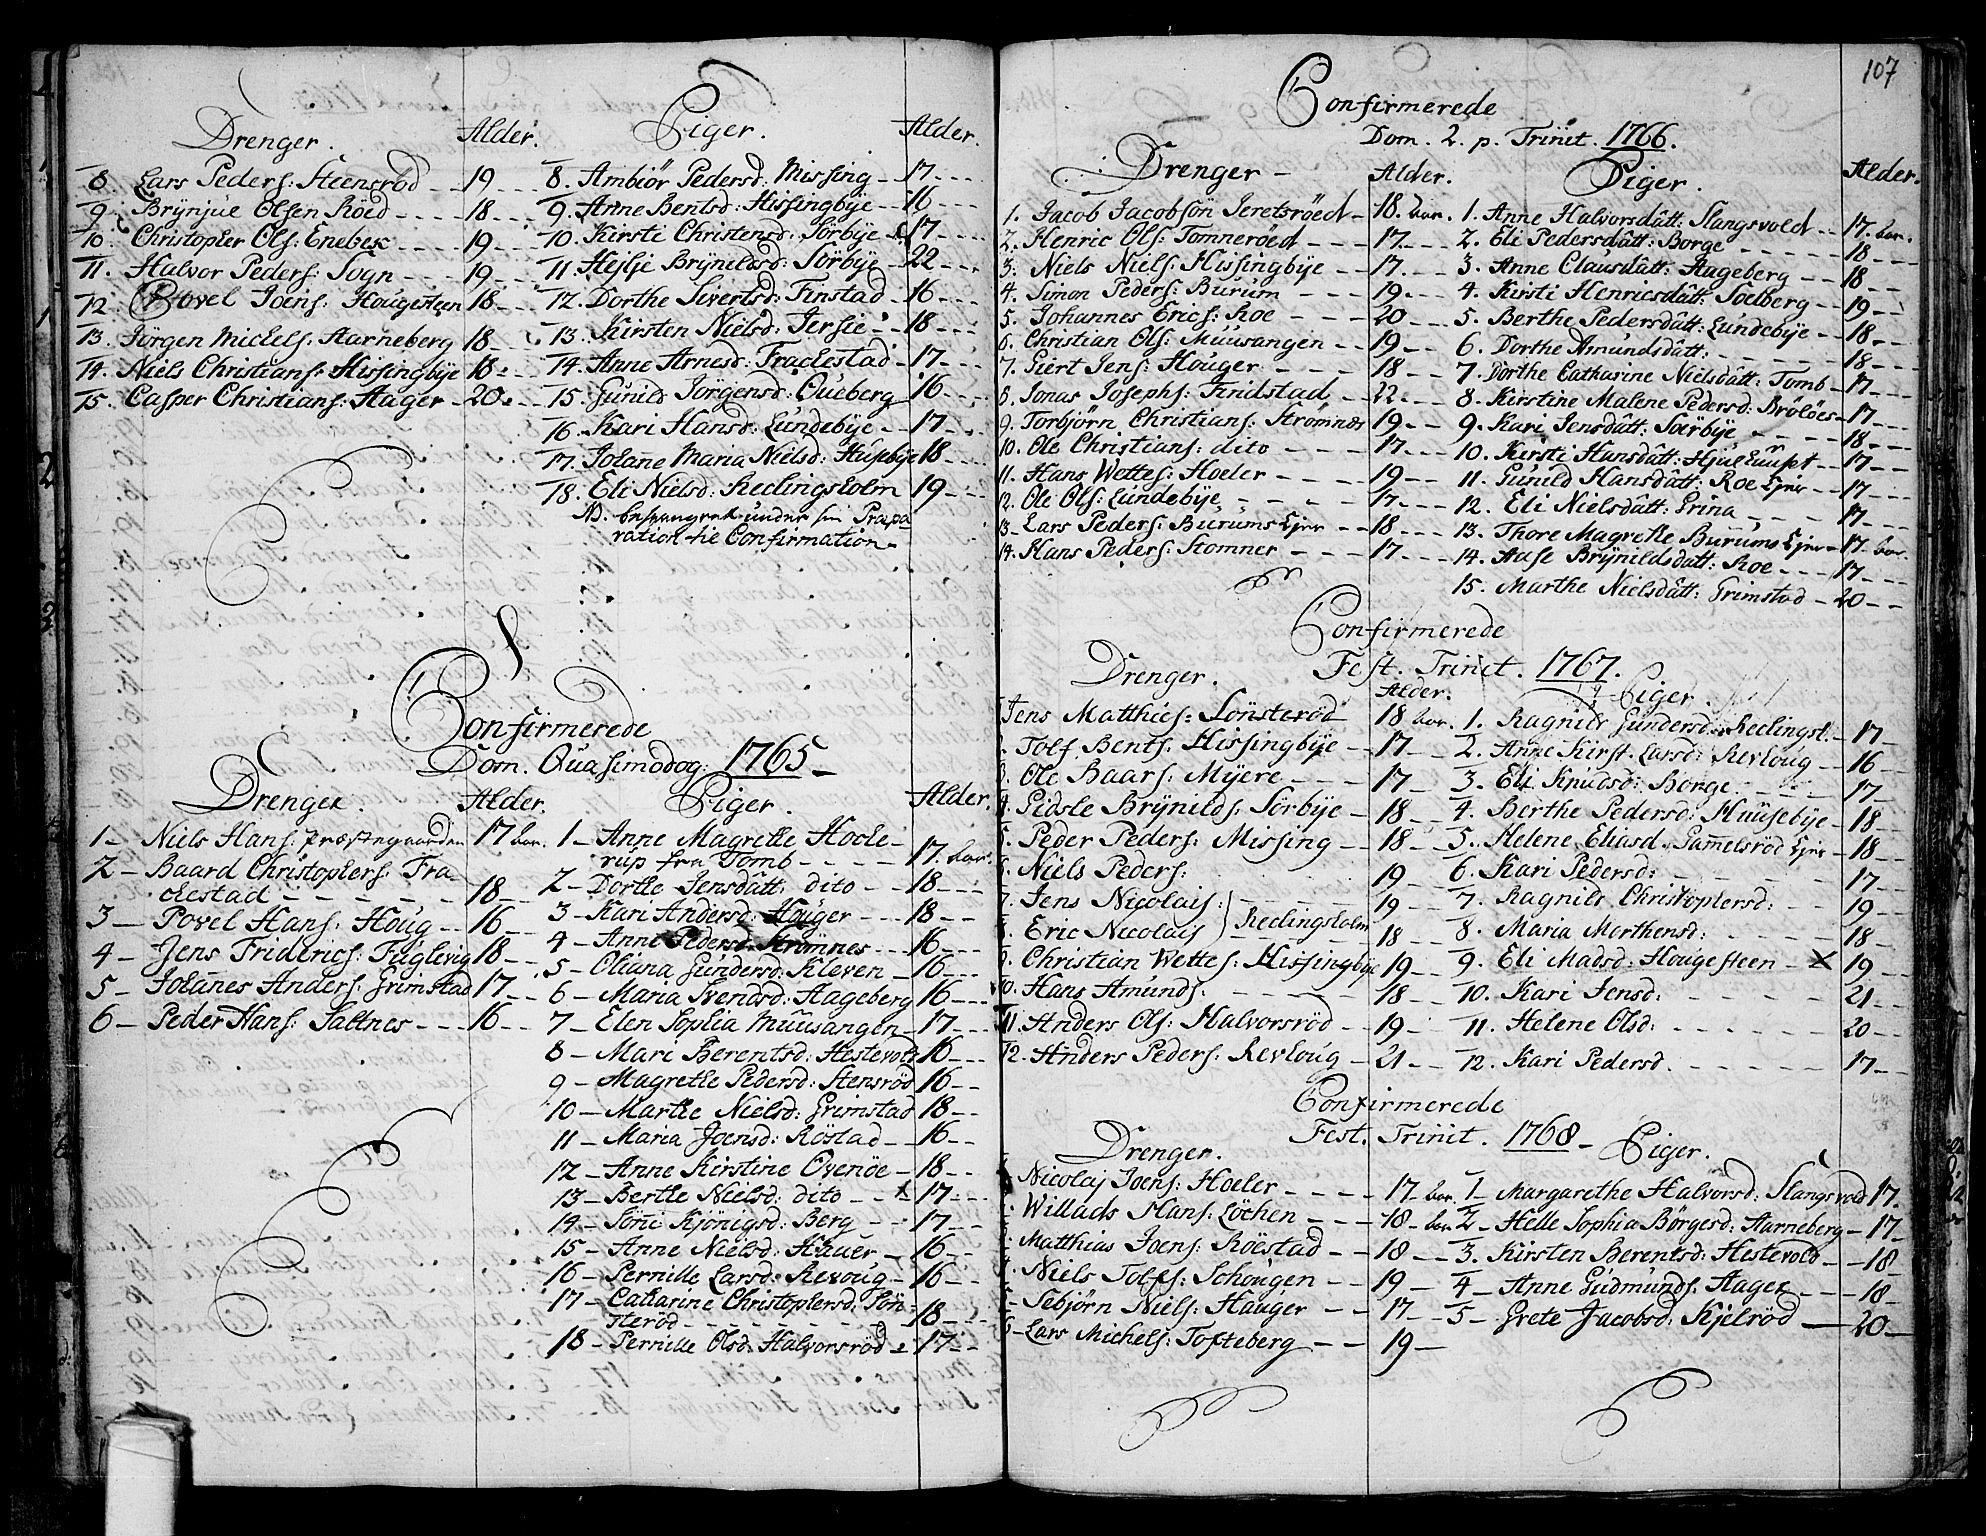 Drenger. Alder.
8. Lars Peders: Steensröd 19
9. Brÿnjul Olsen Röed 18
10. Christopher Ols: Enebek 19
11. Halvor Peders: Sogn 19
12. Povel Joens: Hougesteen 18
13. Jörgen Mickels: Aarneberg 18
14. Niels Christians: Hissingbÿe 18
15. Casper Christians: Hager 20
Piger. Alder.
8. Ambiör Pedersd: Missing 17
9. Anne Bentsd: Hissingbÿe 16
10. Kirsti Christensd: Sörbÿe 17
11. Brÿnildsd: Sörbÿe 22
12. Dorthe Sivertsd: Finstad 16
13. Kirsten Nielsd: Jersie 18
14. Anne Arnesd: Frackestad 17
15. Gunild Jörgensd: Oueberg 16
16. Kari Hansd: Lundebÿe 17
17. Johane Maria Nielsd: Husebÿe 18
18. Eli Nielsd: Reclingsholm 19
NB. besvangret under sin Præpa-
ration til Confirmation
Confirmerede
Dom. Quasimodog: 1765
Drenger. Alder.
1 Niels Hans: Præstegaarden 17 aar.
2 Baard Christophers: Fra-
ckestad 18
3 Povel Hans: Houg 16
4 Jens Friderics: Fuglevig 18
5 Johañes Anders: Grimstad 17
6 Peder Hans: Saltnes 16
Piger. Alder.
1 Anne Magrethe Hocke-
rup fra Tomb 17 aar.
2 Dorthe Jensdâtt: dito 18
3 Kari Andersd: Houger 18
4 Anne Pedersd: Strömnes 16
5 Oliana Gundersd: Kleven 16
6 Maria Svendsd: Hageberg 16
7 Elen Sophia Muusangen 17
8 Mari Berentsd: Hestevold 16
9 Magrethe Pedersd: Stensröd 16
10 Marthe Nielsd: Grimstad 18
11 Maria Joensd: Röstad 16
12 Anne Kirstine Ovenöe 18
13 Berthe Nielsd: dito x 17
14 Söñi Kjönigsd: Berg 17
15 Anne Nielsd: Hauer 16
16 Pernille Larsd: Revoug 16
17 Catharine Christophersd: Sön-
steröd 18
18 Pernille Olsd: Halvorsröd 17
107
Confirmerede
Dom. 2. p. Trinit. 1766.
Drenger Alder.
1. Jacob Jacobsön Jeretsröed 18. aar.
2. Henric Ols: Tomneröed 17
3. Niels Niels: Hissingbÿe 17
4. Simon Peders: Burum 19
5. Johannes Erics: Roe 20
6. Christian Ols: Muusangen 19
7. Giert Jens: Houger 18
8. Jonas Josephs: Findstad 22
9. Torbjörn Christians: Strömnæs 19
10. Ole Christians: dito 17
11. Hans Wettes: Hoeler 19
12. Ole Ols: Lundebÿe 17
13. Lars Peders: Burums Ejer 18
14. Hans Peders: Stomner 17
Piger. Alder.
1. Anne Halvorsdâtt: Slangsvold 17. aar.
2. Eli Pedersdâtt: Borge 18
3. Anne Clausdâtt: Hageberg 18
4. Kirsti Henricsdâtt: Soelberg 19
5. Berthe Pedersdâtt: Lundebÿe 18
6. Dorthe Amundsdâtt: 18
7. Dorthe Catharine Nielsdâtt: Tomb 17
8. Kirstine Malene Pedersd: Brölöes 17
9. Kari Jensdâtt: Soerbÿe 18
10. Kirsti Hansdâtt: 17
11. Gunild Hansdâtt: Roe Ejer 17
12. Eli Nielsdâtt: Grina 17
13. Thore Magrethe Burums Ejer 17. aar.
14. Aase Brÿnildsdâtt: Roe 17
15. Marthe Nielsdâtt: Grimstad 20
Confirmerede
Fest. Trinit. 1767.
Drenger. Alder.
Jens Matthies: Sönsteröd 18 aar.
Tolf Bents: Hissingbÿe 17
3. Ole Baars: Mÿere 17
4. Gidsle Brÿnilds: Sörbÿe 18
5. Peder Peders: Missing 18
6. Niels Peders: 19
7. Jens Nicolais: 19
8. Eric Nicolais } Reclingsholm 18
9. Christian Wettes: Hissingbÿe 19
10. Hans Amunds: 18
11. Anders Ols: Halvorsröd 19
12. Anders Peders: Revloug 21
Piger
1. Ragnild Gundersd: Reclingsl. 17
2. Anne Kirst. Larsd: Revloug 16
3. Eli Knudsd: Borge 17
4. Berthe Pedersd: Huusebÿe 18
5. Helene Eliasd: Sam̃elsröd Ejer 18
6. Kari Pedersd: 17
7. Ragnild Christophersd: 19
8. Maria Morthensd: 18
9. Eli Madsd: Hougesteen x 19
10. Kari Jensd: 21
11. Helene Olsd: 20
12. Kari Pedersd. 17
Confirmerede
Fest. Trinit. 1768
Drenger.
Nicolaj Joens: Hoeler 17 aar.
Willads Hans: Löchen 18 aar
Matthias Joens: Röestad 18
Niels Tolfs: Schougen 19
5 Sebjörn Niels: Hauger 17
6 Lars Michels: Tofteberg 19
Piger.
1 Margarethe Halvorsd: Slangsvold 17.
2 Helle Sophia Börgesd: Aarneberg 17
3. Kirsten Berentsd: Hestevold 18
4 Anne Gudmunds: Hager 18
5 Grete Jacobsd: Kjelröd 20